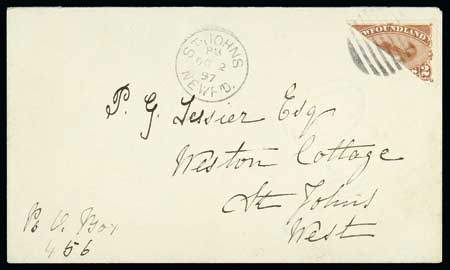 ST. JOHN'S
PM
OC 2
97
NEWF'D.
NEWFOUNDLAND
2
P. G. Tessier Esq
Weston Cottage
St Johns
West
P. O. Box
456